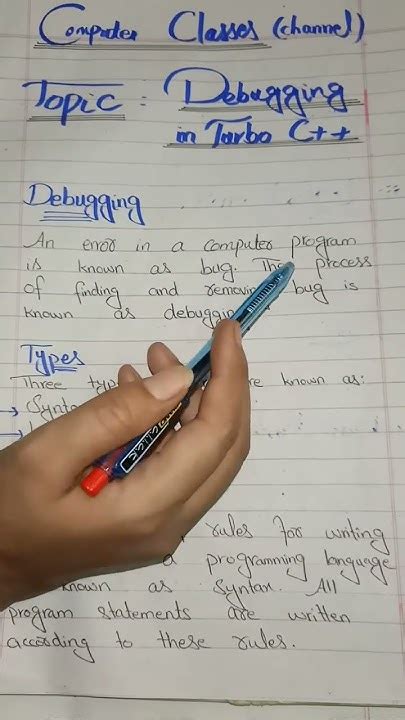 Computer Classes (channel)
Topic : Debugging
in Turbo C++
Debugging
An error in a computer program
is known as bug. The process
of finding and removing bug is
known as debugging
Types
Three are known as:
rules for writing
a programming language
known as Syntax. All
program statements are written
according to these rules.